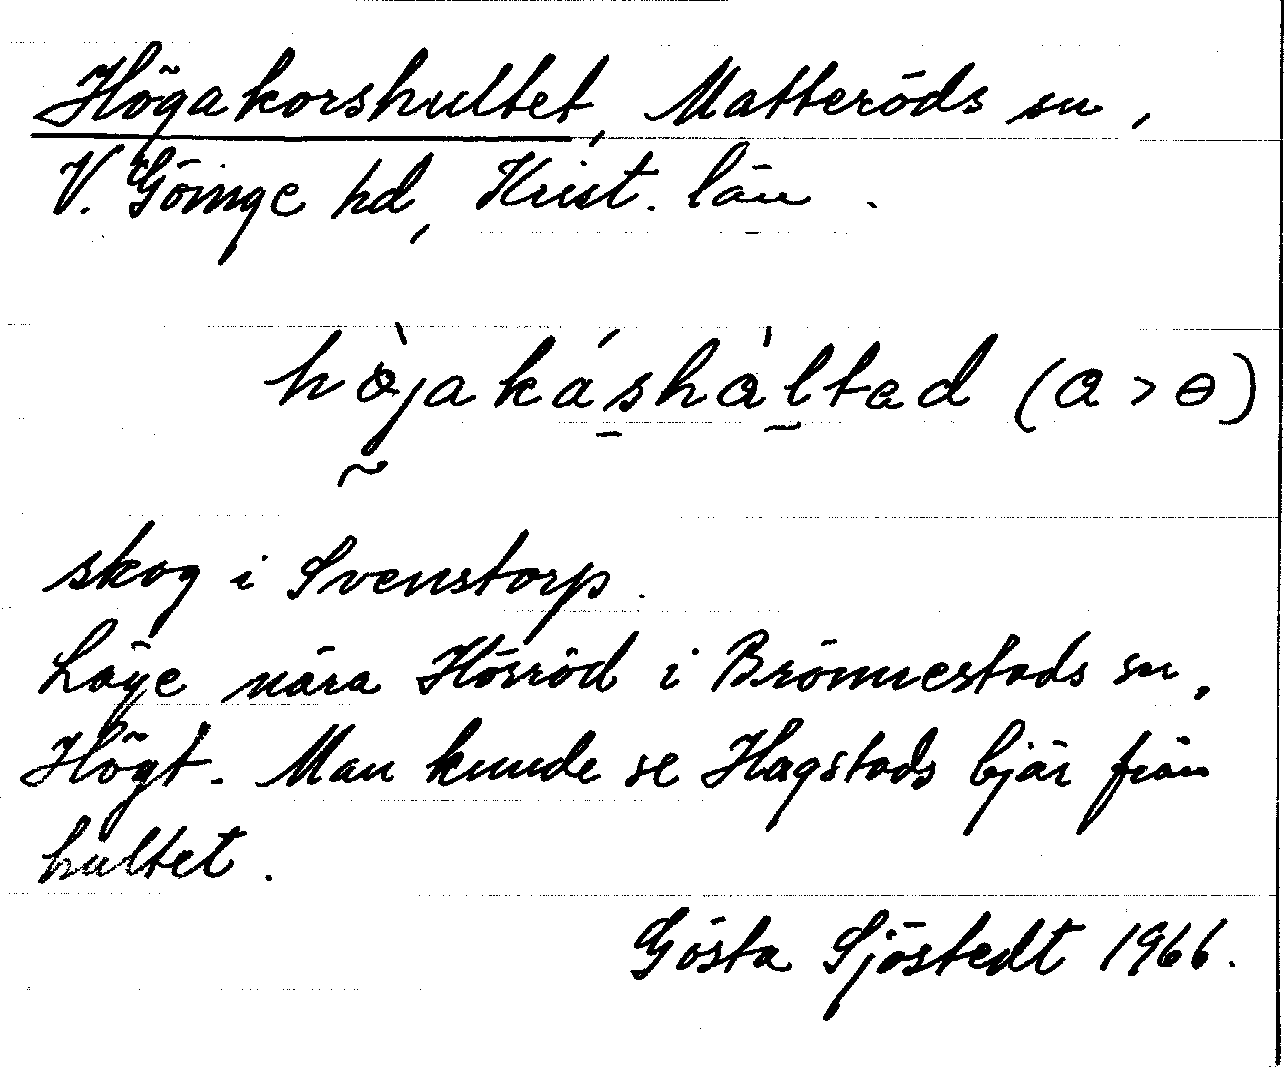 Högakorshultet, Matteröds sn,
V. Göinge hd, Krist. län.
höjakáshàltad (a > ɵ)
skog i Svenstorp.
Läge nära Hörröd i Brönnestads sn.
Högt. Man kunde se Hagstads bjär från
hultet.
Gösta Sjöstedt 1966.